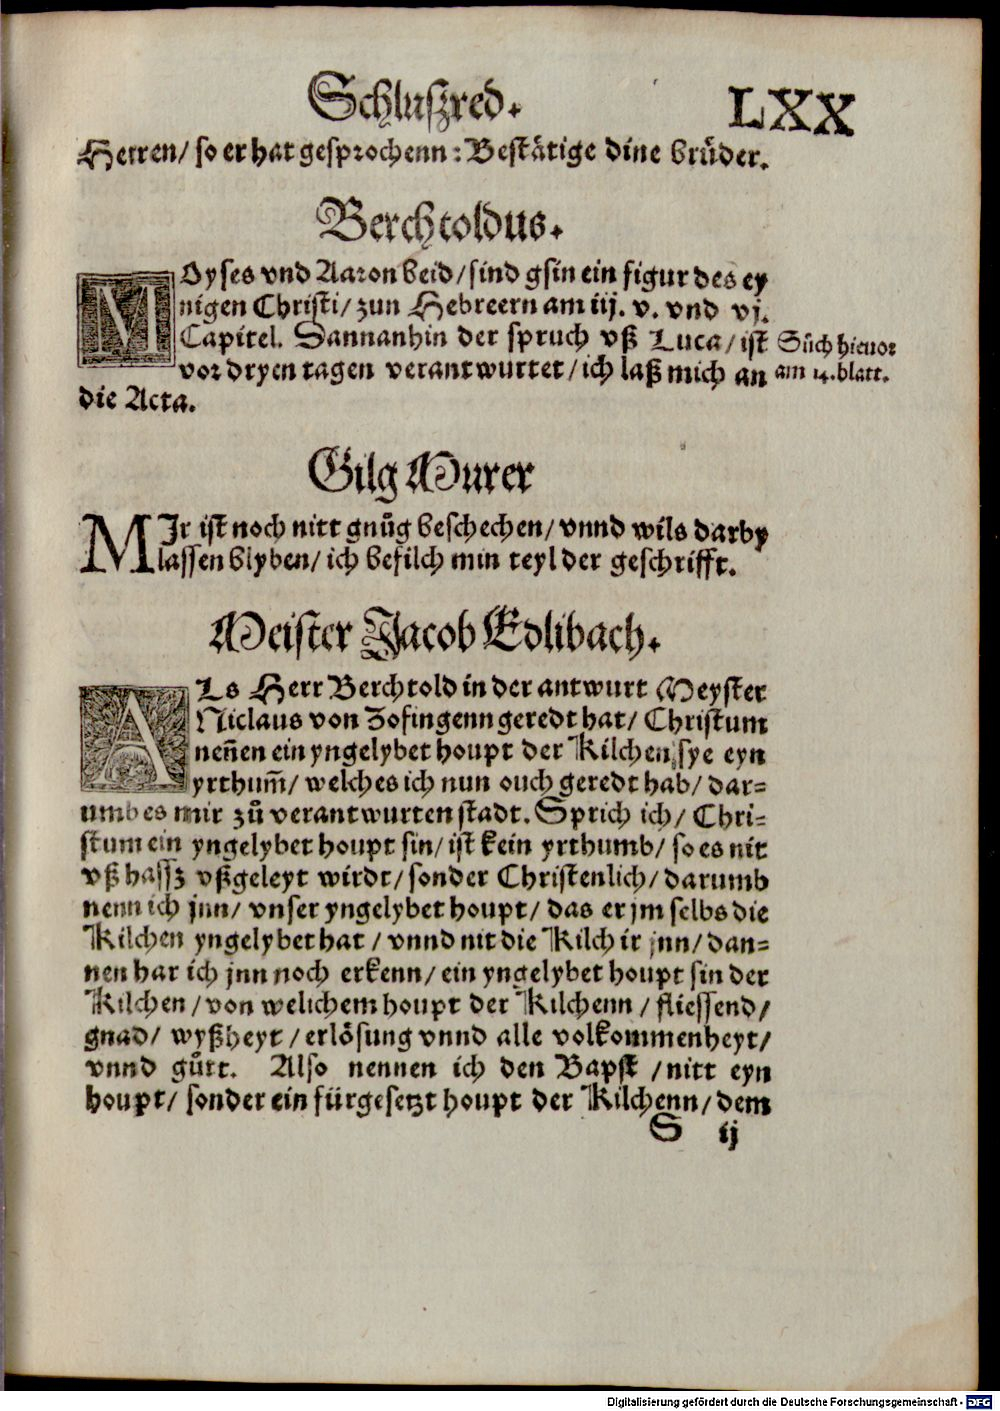 Schluszred. LXX
Herren/ so er hat gesprochenn: Bestätige dine brůder.
Berchtoldus.
MOyses vnd Aaron beid/ sind gsin ein figur des ey
nigen Christi/ zun Hebreern am iij. v. vnd vj.
Capitel. Dannanhin der spruch vß Luca/ ist
vor dryen tagen verantwurtet/ ich laß mich an
die Acta.
Sůch hieuor
am 14. blatt.
Gilg Murer
MIr ist noch nitt gnůg beschechen/ vnnd wils darby
lassen blyben/ ich befilch min teyl der geschrifft.
Meister Jacob Edlibach.
ALs Herr Berchtold in der antwurt Meyster
Niclaus von Zofingenn geredt hat/ Christum
neñen ein yngelybet houpt der Kilchen, sye eyn
yrthum̃/ welches ich nun ouch geredt hab/ dar=
umb es mir zů verantwurten stadt. Sprich ich/ Chri=
stum ein yngelybet houpt sin/ ist kein yrthumb/ so es nit
vß hassz vßgeleyt wirdt/ sonder Christenlich/ darumb
nenn ich jnn/ vnser yngelybet houpt/ das er jm selbs die
Kilchen yngelybet hat/ vnnd nit die Kilch ir jnn/ dan=
nen har ich jnn noch erkenn/ ein yngelybet houpt sin der
Kilchen/ von welichem houpt der Kilchenn/ fliessend/
gnad/ wyßheyt/ erlösung vnnd alle volkommenheyt/
vnnd gůtt. Also nennen ich den Bapst/ nitt eyn
houpt/ sonder ein fürgesetzt houpt der Kilchenn/ dem
S ij
Digitalisierung gefördert durch die Deutsche Forschungsgemeinschaft - DFG